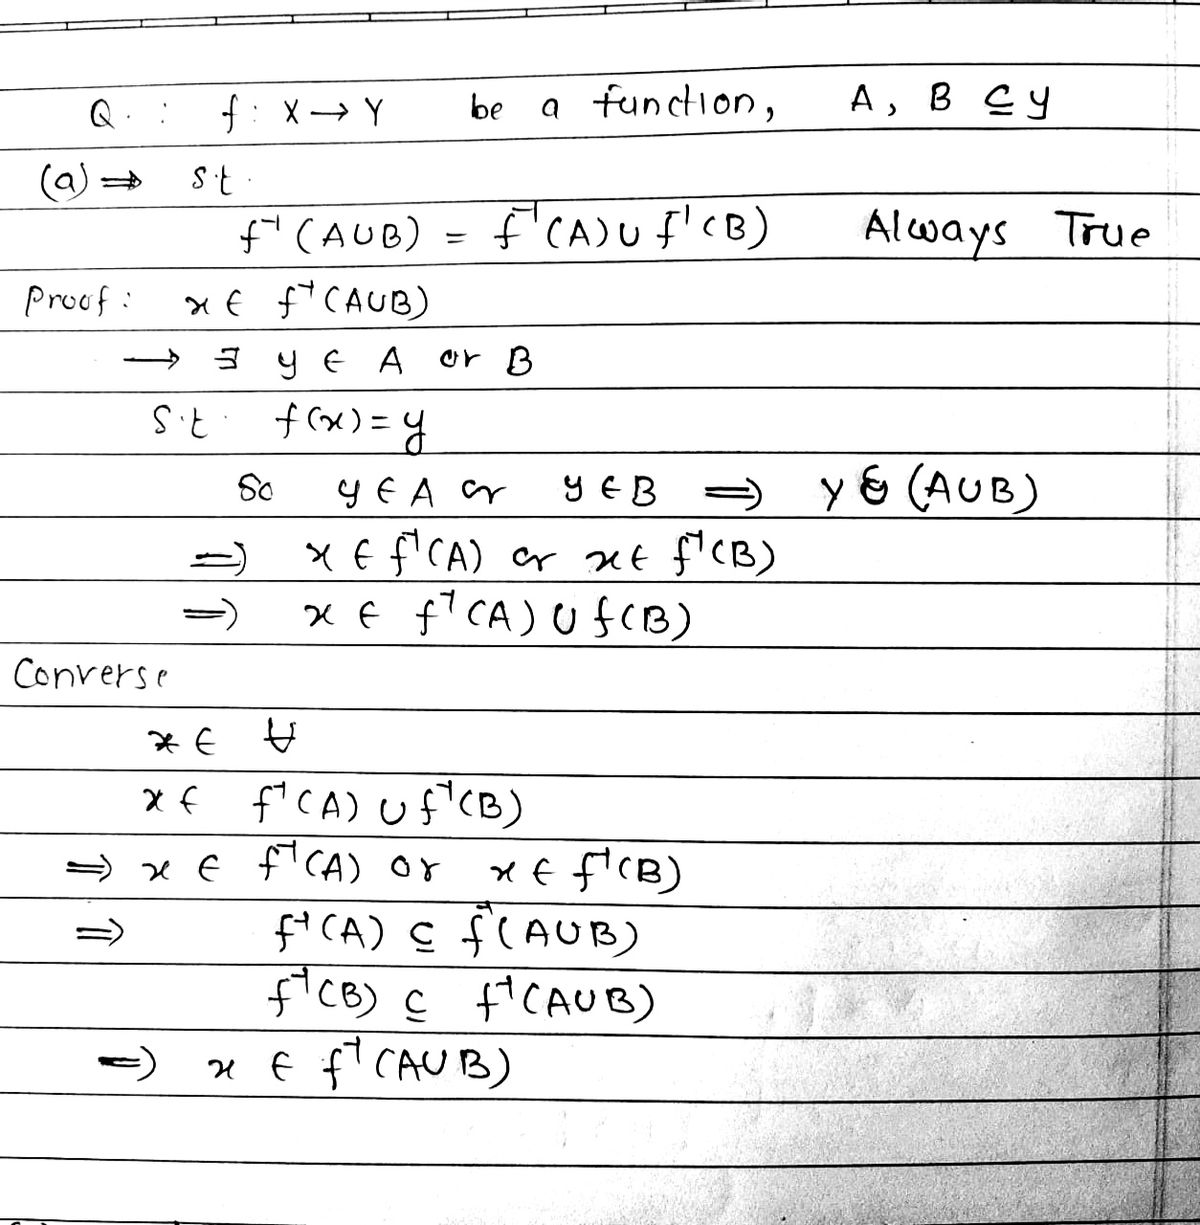 Q. : f : X → Y be a function, A, B ⊆ y
(a) ⇒ s.t.
f⁻¹ (A∪B) = f⁻¹(A) ∪ f⁻¹(B) Always True
Proof : x ∈ f⁻¹(A∪B)
→ ∃ y ∈ A or B
S.t. f(x) = y
So y ∈ A or y ∈ B ⇒ y ∈ (A∪B)
⇒ x ∈ f⁻¹(A) or x ∈ f⁻¹(B)
⇒ x ∈ f⁻¹(A) ∪ f(B)
Converse
x ∈ ∀
x ∈ f⁻¹(A) ∪ f⁻¹(B)
⇒ x ∈ f⁻¹(A) or x ∈ f⁻¹(B)
⇒ f⁻¹(A) ⊆ f⁻¹(A∪B)
f⁻¹(B) ⊆ f⁻¹(A∪B)
⇒ x ∈ f⁻¹(A∪B)